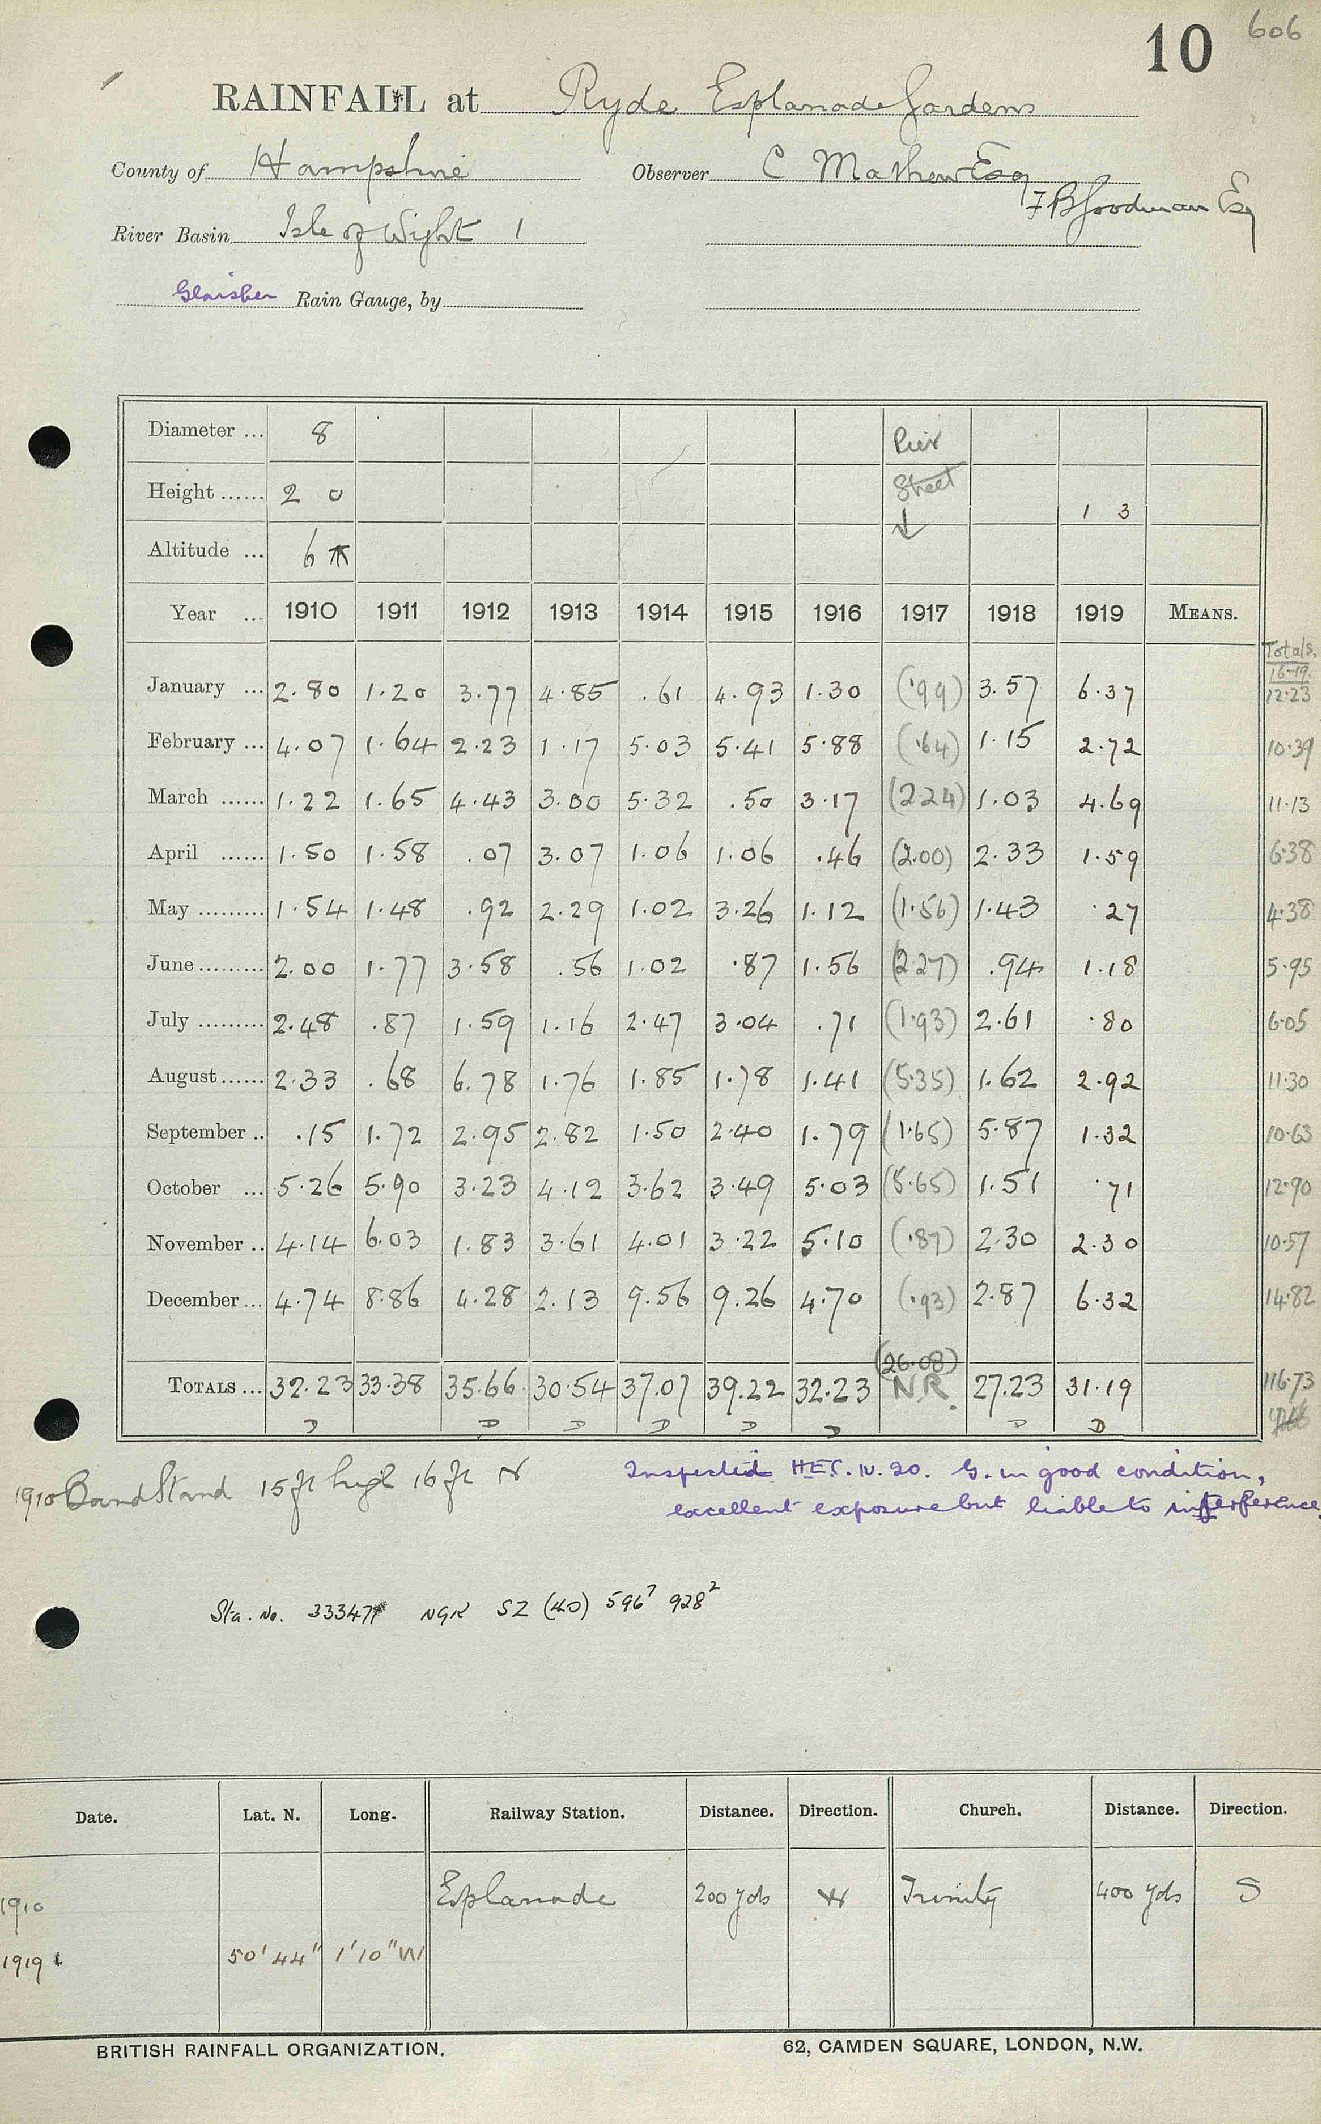 10 606
RAINFALL at Ryde Esplanade Gardens
County of Hampshire Observer C Mathew Esq
F B Goodman Esq
River Basin Isle of Wight 1
Glaisher Rain Gauge, by
Diameter ... 8 Pier
Height ...... 2 0 Street 1 3
Altitude ... 6
Year ... 1910 1911 1912 1913 1914 1915 1916 1917 1918 1919 MEANS. Totals. 16-19.
January ... 2.80 1.20 3.77 4.85 .61 4.93 1.30 (.99) 3.57 6.37 12.23
February ... 4.07 1.64 2.23 1.17 5.03 5.41 5.88 (.64) 1.15 2.72 10.39
March ...... 1.22 1.65 4.43 3.00 5.32 .50 3.17 (2.24) 1.03 4.69 11.13
April ...... 1.50 1.58 .07 3.07 1.06 1.06 .46 (2.00) 2.33 1.59 6.38
May ......... 1.54 1.48 .92 2.29 1.02 3.26 1.12 (1.56) 1.43 .27 4.38
June ......... 2.00 1.77 3.58 .56 1.02 .87 1.56 (2.27) .94 1.18 5.95
July ......... 2.48 .87 1.59 1.16 2.47 3.04 .71 (1.93) 2.61 .80 6.05
August ...... 2.33 .68 6.78 1.76 1.85 1.78 1.41 (5.35) 1.62 2.92 11.30
September .. .15 1.72 2.95 2.82 1.50 2.40 1.79 (1.65) 5.87 1.32 10.63
October ... 5.26 5.90 3.23 4.12 3.62 3.49 5.03 (5.65) 1.51 .71 12.90
November .. 4.14 6.03 1.83 3.61 4.01 3.22 5.10 (.87) 2.30 2.30 10.57
December ... 4.74 8.86 4.28 2.13 9.56 9.26 4.70 (.93) 2.87 6.32 14.82
(26.08)
TOTALS ... 32.23 33.38 35.66 30.54 37.07 39.22 32.23 N.R. 27.23 31.19 116.73
D D D D D D D D
1910 Band Stand 15 ft high 16 ft N
Inspected H.E.C. IV. 20. G. in good condition,
excellent exposure but liable to interference.
Sta. No. 33347 NGR SZ (40) 596⁷ 928²
Date. Lat. N. Long. Railway Station. Distance. Direction. Church. Distance. Direction.
1910 Esplanade 200 yds W Trinity 400 yds S
1919 50'44" 1'10"W
BRITISH RAINFALL ORGANIZATION. 62, CAMDEN SQUARE, LONDON, N.W.